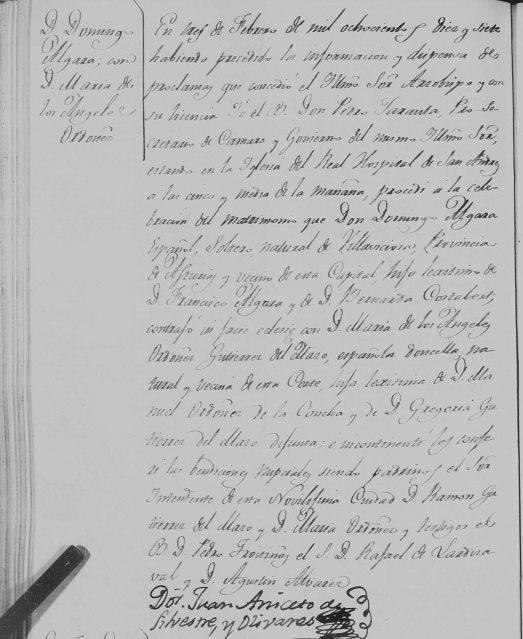 D. Domingo
Algara, con
D. Maria de
los Angeles
Ordoñez.
En tres de Febrero de mil ochocientos diez y siete
habiendo precedido la informacion y dispensa de
proclamas que concedió el Illmo Sor Arzobispo y con
su licencia Yo el B. Don Pedro Pro Se-
cretario de Camara y Govierno del mismo Illmo Sor,
estando en la Iglesia del Real Hospital de San Andres
a las cinco y media de la mañana, procedi á la cele-
bracion del matrimonio que Don Domingo Algara
Español, Soltero, natural de Villaviciosa, Provincia
de Asturias y vecino de esta Capital, hijo legitimo de
D. Francisco Algara y de D. Bernarda
contrajo in facie eclesie con D. Maria de los Angeles
Ordoñez Gutierrez del Mazo, española doncella, na-
tural y vecina de esta Corte, hija legitima de D. Ma-
nuel Ordoñez de la Concha y de D. Gregoria Gu-
tierrez del Mazo difunta; é incontinenti les confe-
ri las bendiciones nupciales, siendo padrinos el Sor
Intendente de esta Novilisima Ciudad D. Ramon Gu-
tierrez del Mazo y D. Maria Ordoñez y testigos el
B. D. Pedro el S. D. Rafael de Lardiza-
val y D. Agustin Alvarez
Dor. Juan Aniceto de
Silvestre, y Olivares